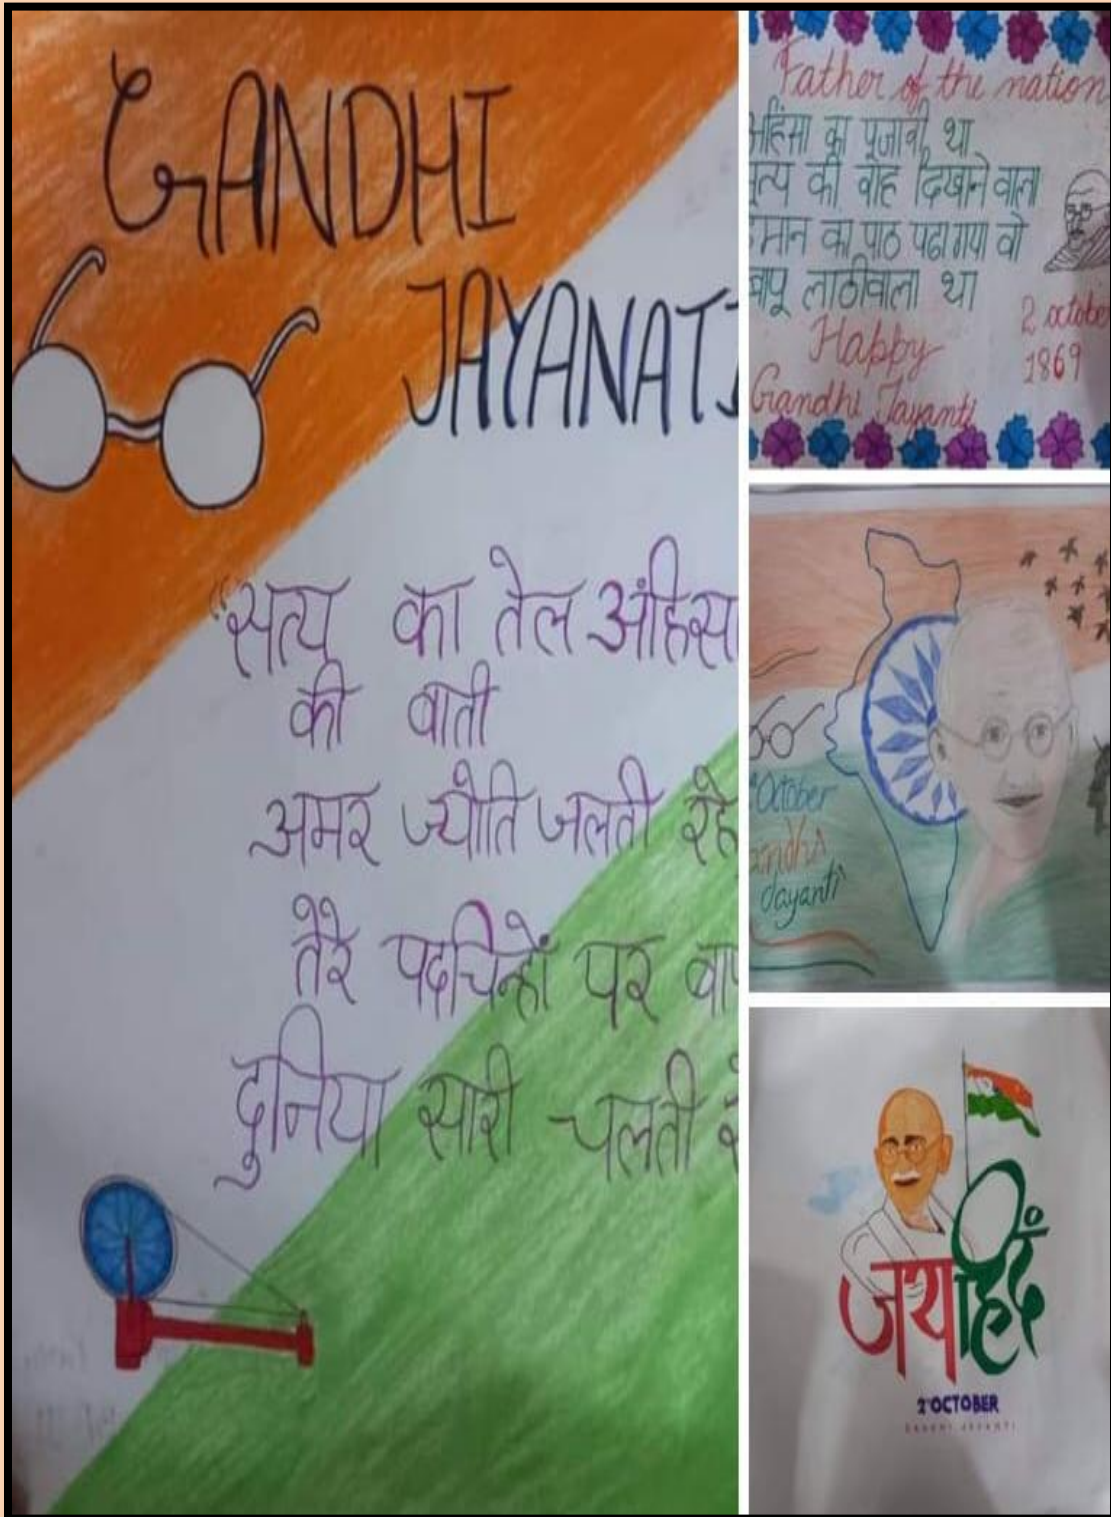 GANDHI
JAYANATI
"सत्य का तेल अंहिसा
की बाती
अमर ज्योति जलती रहे
तेरे पदचिन्हों पर बा
दुनिया सारी चलती
Father of the nation
अहिंसा का पूजारी था
सत्य की राह दिखाने वाला
का पाठ पढा गया वो
बापू लाठीवाला था
2 october
1869
Happy
Gandhi Jayanti
October
andhi
Jayanti
जय हिंद
2 OCTOBER
GANDHI JAYANTI